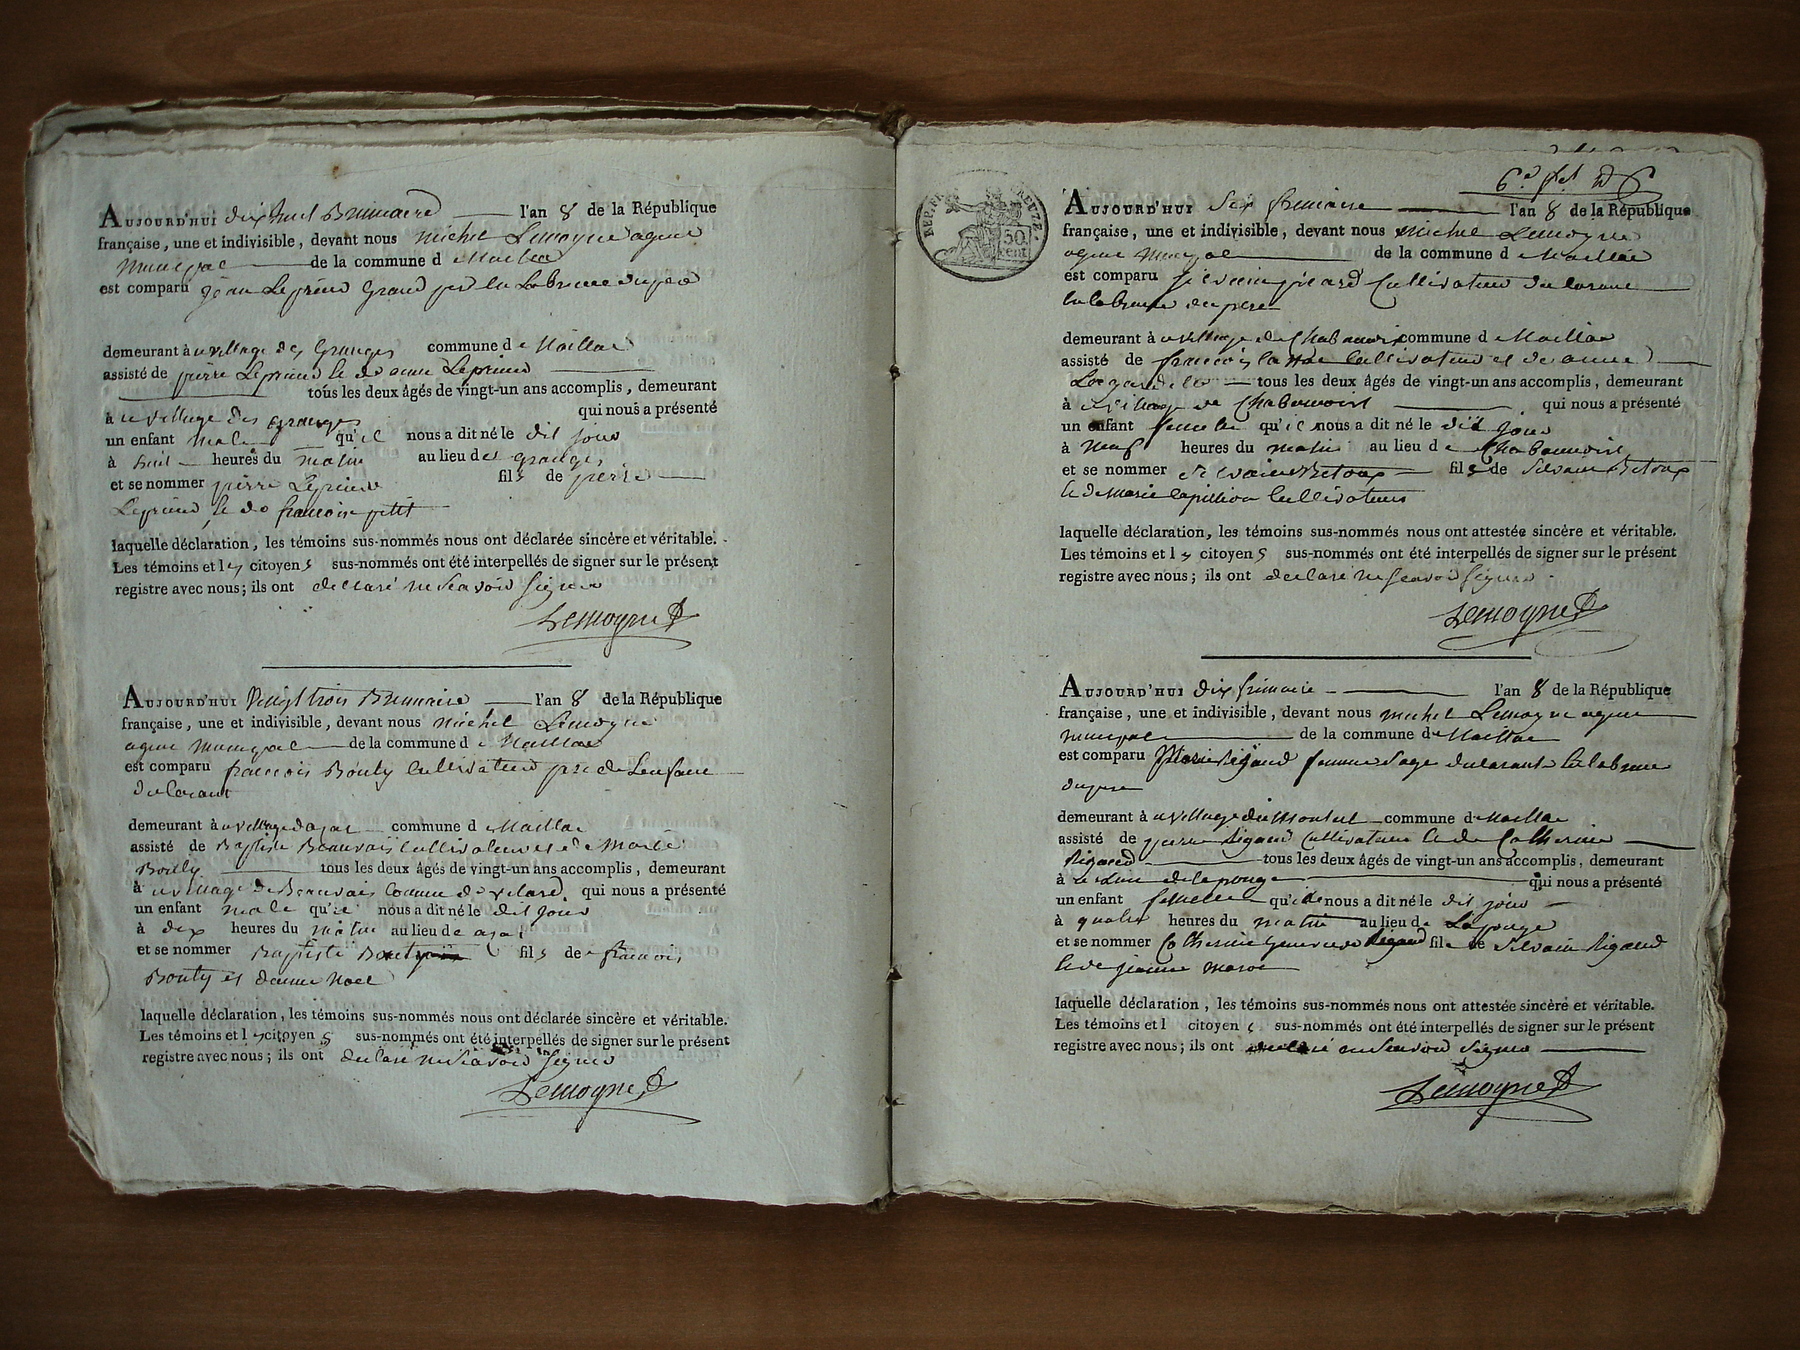 AUJOURD'HUI dix huit Brumaire l'an 8 de la République
française, une et indivisible, devant nous michel Lemoyne agent
municipal de la commune d e Maillac
est comparu jean Leprieur Grand per
demeurant à u village des Granges commune d e Maillac
assisté de pierre Leprieur anne Leprieur
tous les deux âgés de vingt-un ans accomplis, demeurant
à u village des Granges qui nous a présenté
un enfant male qu'il nous a dit né le dit jour
à huit heures du matin au lieu des granges
et se nommer pierre Leprieur fils de pierre
Leprieur francoise petit
laquelle déclaration, les témoins sus-nommés nous ont déclarée sincère et véritable.
Les témoins et les citoyens sus-nommés ont été interpellés de signer sur le présent
registre avec nous; ils ont declaré ne scavoir signer
Lemoyne
AUJOURD'HUI Vingt trois Brumaire l'an 8 de la République
française, une et indivisible, devant nous michel Lemoyne
agent municipal de la commune d e Maillac
est comparu francois Bouty Cultivateur
demeurant à u village commune d e Maillac
assisté de Baptiste Beauvais Cultivateur Marie
Boutty tous les deux âgés de vingt-un ans accomplis, demeurant
à u village de Beauvais qui nous a présenté
un enfant male qu'il nous a dit né le dit jour
à dix heures du matin au lieu de
et se nommer Baptiste fils de francois
Bouty et danne Noel
laquelle déclaration, les témoins sus-nommés nous ont déclarée sincère et véritable.
Les témoins et les citoyens sus-nommés ont été interpellés de signer sur le présent
registre avec nous; ils ont declaré ne scavoir signer
Lemoyne
REP. FRA.
50
cent
CREUZE
AUJOURD'HUI Six frimaire l'an 8 de la République
française, une et indivisible, devant nous Michel Lemoyne
agent municipal de la commune d e Maillac
est comparu Silvain picard Cultivateur
du pere
demeurant à u village de Chabannois commune d e Maillac
assisté de francois Cultivateur et de anne
tous les deux âgés de vingt-un ans accomplis, demeurant
à u village de Chabannois qui nous a présenté
un enfant femelle qu'il nous a dit né le dit jour
à neuf heures du matin au lieu d e Chabannois
et se nommer Silvain Betoux fils de Silvain Betoux
Marie Papillion Cultivateurs
laquelle déclaration, les témoins sus-nommés nous ont attestée sincère et véritable.
Les témoins et les citoyens sus-nommés ont été interpellés de signer sur le présent
registre avec nous; ils ont declaré ne scavoir signer
Lemoyne
AUJOURD'HUI dix frimaire l'an 8 de la République
française, une et indivisible, devant nous michel Lemoyne agent
municipal de la commune d e Maillac
est comparu Marie Rigaud femme sage
du pere
demeurant à u village du Montet commune d e Maillac
assisté de pierre Rigaud Cultivateur Catherine
Rigaud tous les deux âgés de vingt-un ans accomplis, demeurant
à qui nous a présenté
un enfant femelle qu' nous a dit né le dit jour
à quatre heures du matin au lieu de Lapouge
et se nommer Catherine Genevieve Rigaud fil de Silvain Rigaud
jeanne
laquelle déclaration, les témoins sus-nommés nous ont attestée sincère et véritable.
Les témoins et l citoyen sus-nommés ont été interpellés de signer sur le présent
registre avec nous; ils ont declaré ne scavoir signer
Lemoyne